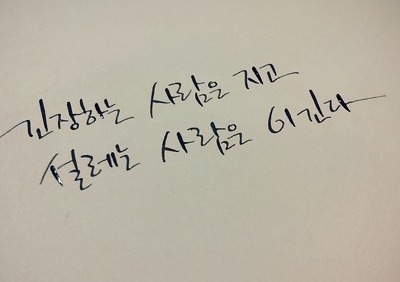 긴장하는 사람은 지고
설레는 사람은 이긴다